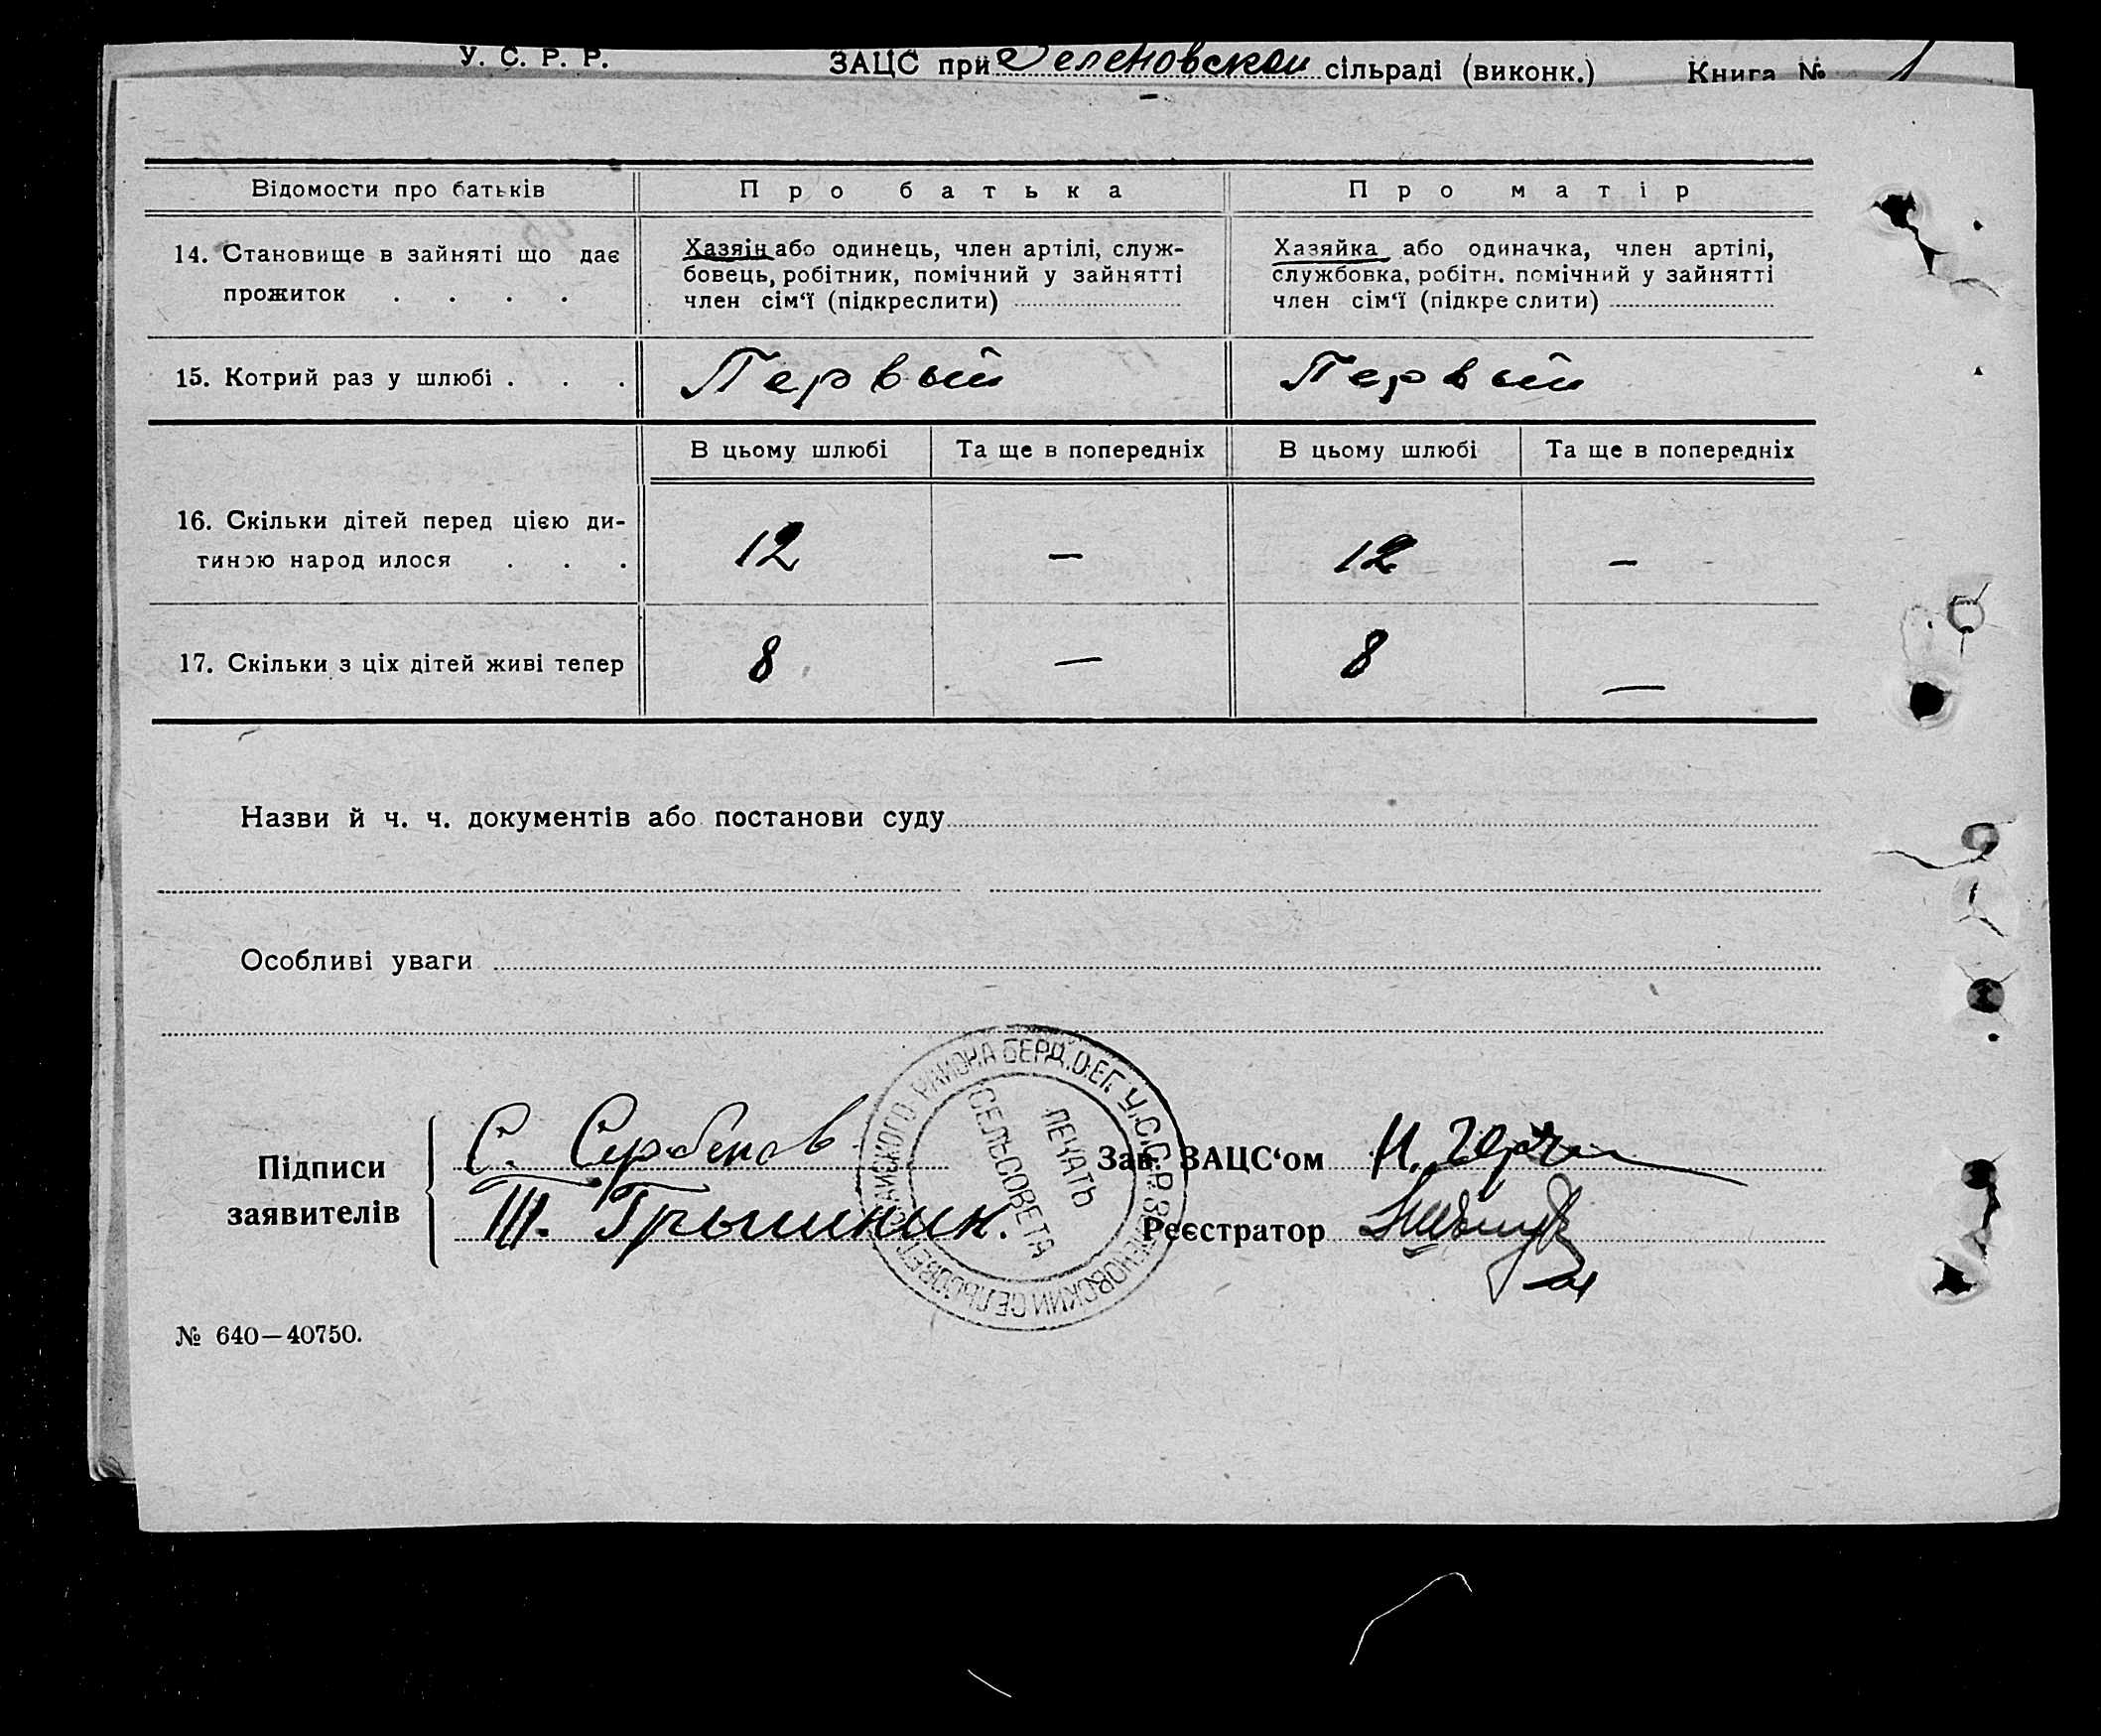 У. С. Р. Р. ЗАЦС при Зеленовской сільраді (виконк.) Книга № 1
Відомости про батьків Про батька Про матір
14. Становище в зайняті що дає
прожиток . . . .
Хазяін або одинець, член артілі, служ-
бовець, робітник, помічний у зайнятті
член сім‘ї (підкреслити)
Хазяйка або одиначка, член артілі,
службовка, робітн. помічний у зайнятті
член сім‘ї (підкре слити)
15. Котрий раз у шлюбі . . . Первый Первый
В цьому шлюбі Та ще в попередніх В цьому шлюбі Та ще в попередніх
16. Скільки дітей перед цією ди-
тиною народ илося . . . 12 — 12 —
17. Скільки з ціх дітей живі тепер 8 — 8 —
Назви й ч. ч. документів або постанови суду
Особливі уваги
Підписи
заявителів
С. Сербенов
Ш. Грышинин.
Зав. ЗАЦС‘ом
Реєстратор
РАЙОНА БЕРД. О. ЕГ. У.С.С.Р. ЗЕЛЕНОВСКИЙ СЕЛЬСОВЕТ
ПЕЧАТЬ
СЕЛЬСОВЕТА
№ 640—40750.